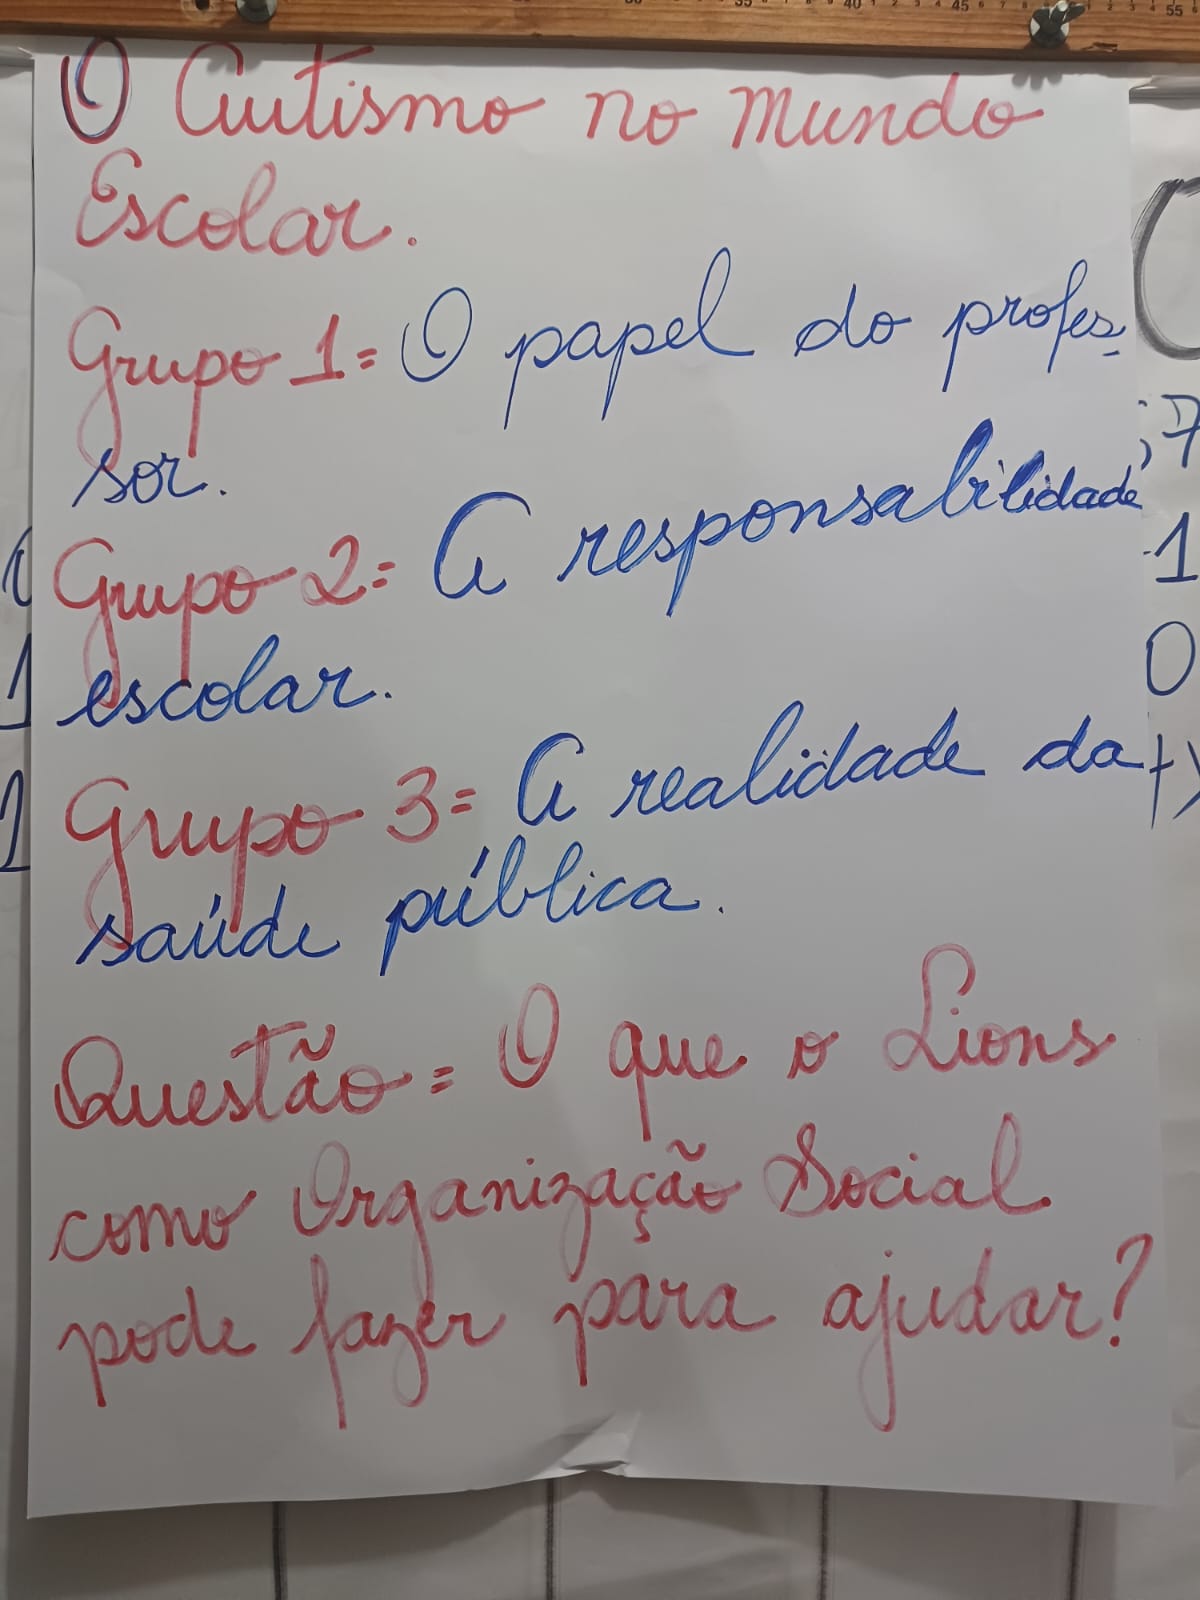 O Autismo no mundo
Escolar.
Grupo 1= O papel do profes-
sor.
Grupo 2= A responsabilidade
escolar.
Grupo 3= A realidade da
saúde pública.
Questão = O que o Lions
como Organização Social
pode fazer para ajudar?